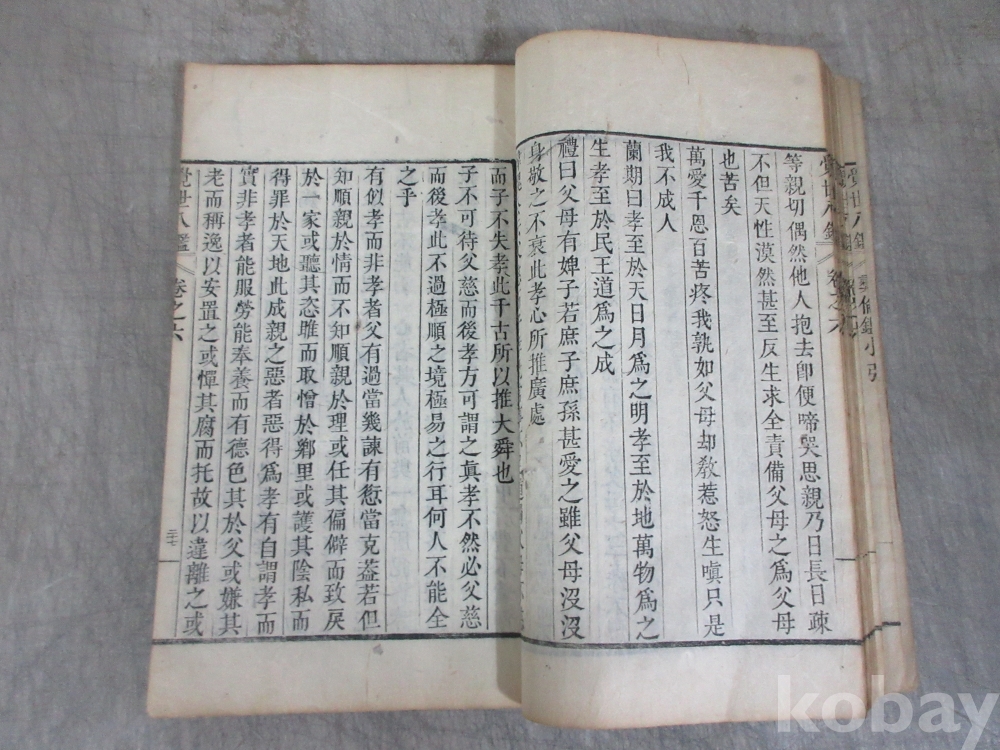 覺世八鑑
彝倫鑑小引
覺世八鑑 卷之六
等親切偶然他人抱去卽便啼哭思親乃日長日疎
不但天性漠然甚至反生求全責備父母之為父母
也苦矣
萬愛千恩百苦疼我孰如父母却敎惹怒生嗔只是
我不成人
蘭期曰孝至於天日月爲之明孝至於地萬物爲之
生孝至於民王道爲之成
禮曰父母有婢子若庶子庶孫甚愛之雖父母沒沒
身敬之不衰此孝心所推廣處
而子不失孝此千古所以推大舜也
子不可待父慈而後孝方可謂之眞孝不然必父慈
而後孝此不過極順之境極易之行耳何人不能全
之乎
有似孝而非孝者父有過當幾諫有愆當克葢若但
知順親於情而不知順親於理或任其偏僻而致戾
於一家或聽其恣雎而取憎於鄕里或護其陰私而
得罪於天地此成親之惡者惡得爲孝有自謂孝而
實非孝者能服勞能奉養而有德色其於父或嫌其
老而稱逸以安置之或憚其腐而托故以違離之或
覺世八鑑 卷之六
三七
kobay